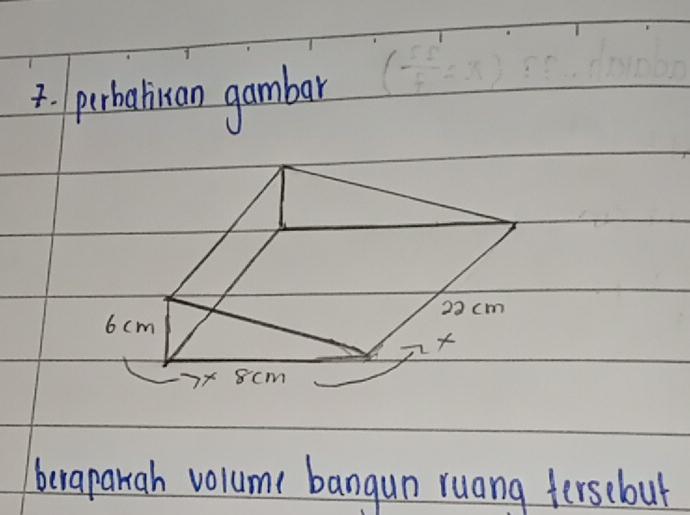 7. perhatikan gambar
6 cm
22 cm
x
x 8 cm
berapakah volume bangun ruang tersebut